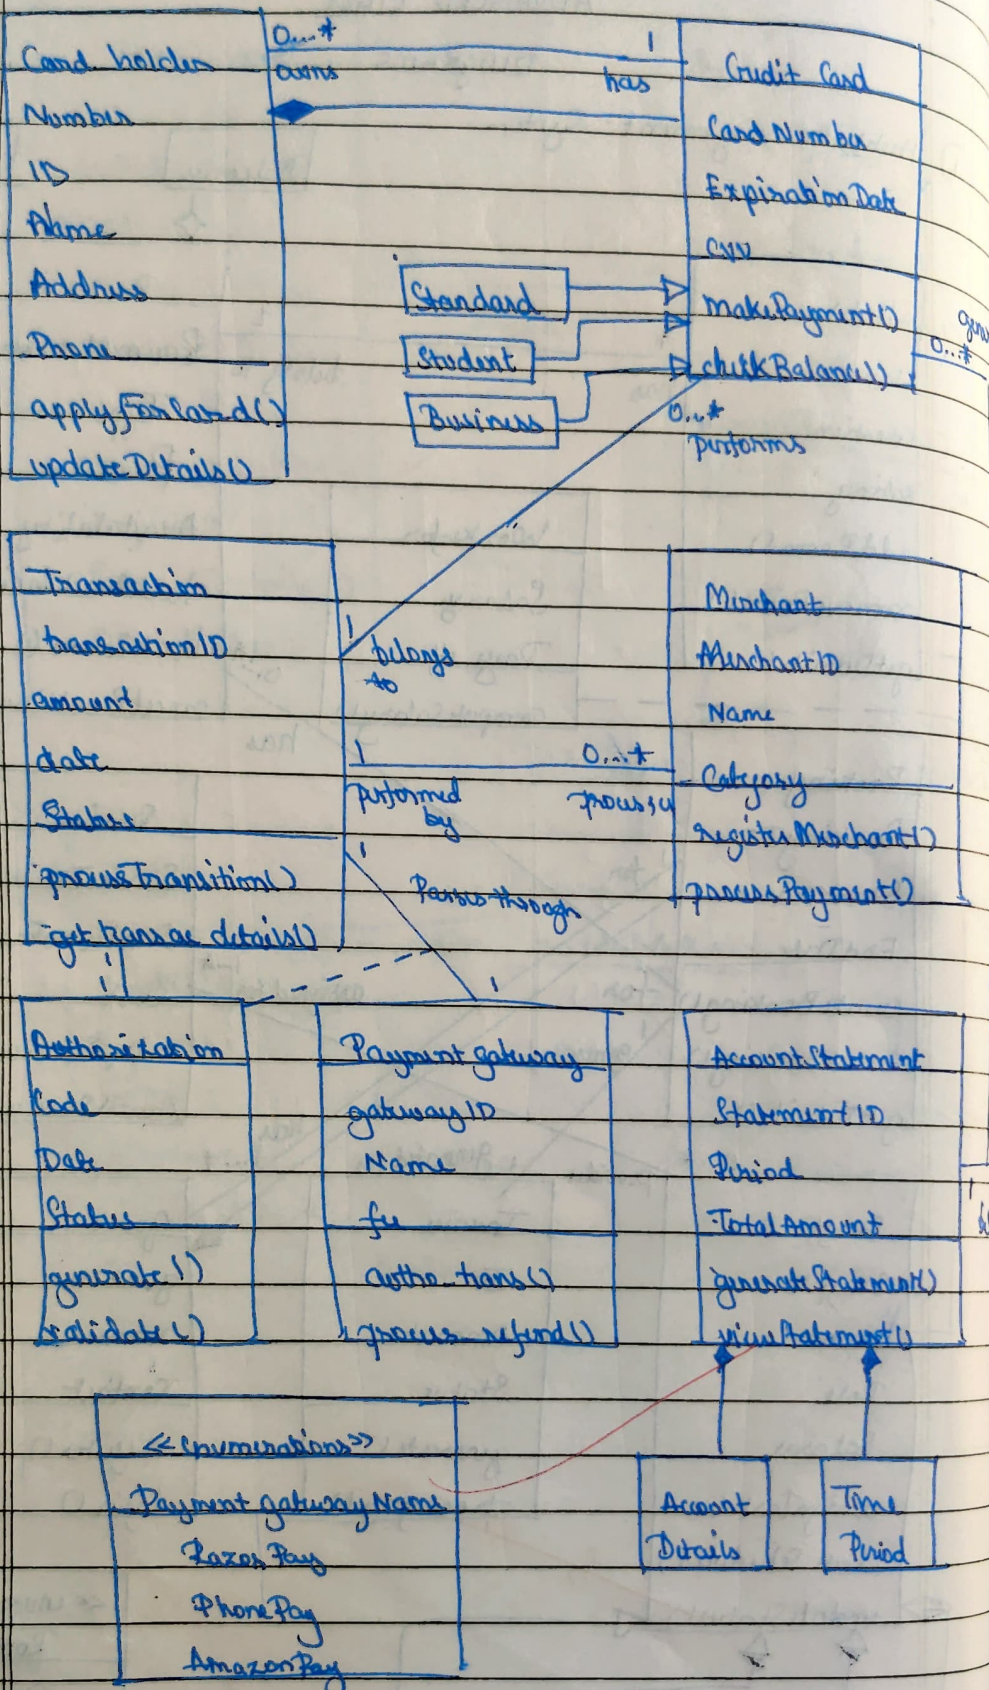 Card holder
Number
ID
Name
Address
Phone
applyforCard()
updateDetails()
0...*
owns
1
has
Credit Card
Card Number
Expiration Date
CVV
makePayment()
checkBalance()
0...*
Standard
Student
Business
0...*
performs
Transaction
transactionID
amount
date
Status
processTransition()
get transac details()
1
belongs
to
1
performed
by
0...*
Merchant
MerchantID
Name
Category
registerMerchant()
processPayment()
1
Passes through
1
1
1
Authorization
Code
Date
Status
generate()
validate()
Payment gateway
gatewayID
Name
fee
autho_trans()
process_refund()
AccountStatement
StatementID
Period
TotalAmount
generateStatement()
viewStatement()
1
<<enumerations>>
Payment gatewayName
RazorPay
PhonePay
AmazonPay
Account
Details
Time
Period